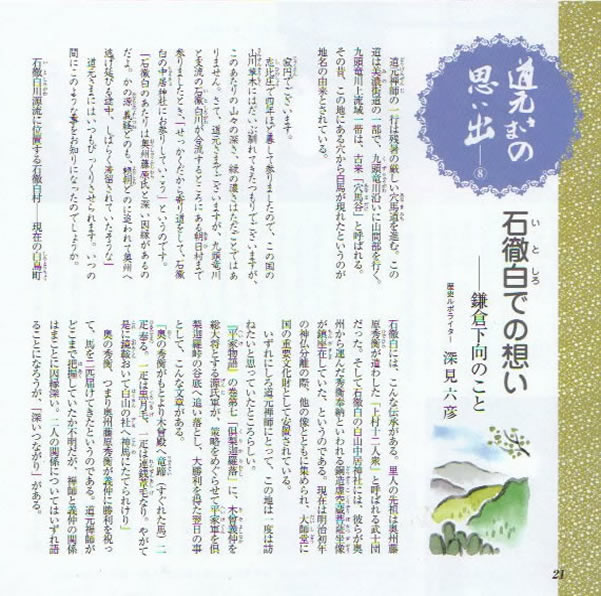 道元さまの
思い出―⑧
石徹白での想い
いとしろ
――鎌倉下向のこと
歴史ルポライター 深見六彦
道元禅師の一行は残暑の厳しい穴馬道を進む。この
道は美濃街道の一部で、九頭竜川沿いに山間部を行く。
九頭竜川上流域一帯は、古来「穴馬谷」と呼ばれる。
その昔、この地にある穴から白馬が現れたというのが
地名の由来とされている。
寂円でございます。
志比庄で四年ほど暮して参りましたので、この国の
山川草木にはだいぶ馴れてきたつもりでございますが、
このあたりの山々の深さ、緑の濃さはただごとではあ
りません。さて、道元さまでございますが、九頭竜川
と支流の石徹白川が合流するところにある朝日村まで
参りましたとき、「せっかくだから寄り道をして、石徹
白の中居神社にお参りしていこう」というのです。
「石徹白のあたりは奥州藤原氏と深い因縁があるの
だよ。かの源義経どのも、頼朝どのに追われて奥州へ
逃げ延びる途中、しばらく滞留されていたそうな」
道元さまにはいつもびっくりさせられます。いつの
間にこのような事をお知りになったのでしょうか。
石徹白川源流に位置する石徹白村――現在の白鳥町
石徹白には、こんな伝承がある。里人の先祖は奥州藤
原秀衡が遣わした「上村十二人衆」と呼ばれる武士団
だった。そして石徹白の白山中居神社には、彼らが奥
州から運んだ秀衡奉納といわれる銅造虚空蔵菩薩坐像
が鎮座していた、というのである。現在は明治初年
の神仏分離の際、他の像とともに集められ、大師堂に
国の重要文化財として安置されている。
いずれにしろ道元禅師にとって、この地は一度は訪
ねたいと思っていたところらしい。
『平家物語』の巻第七「倶梨迦羅落」に、木曾義仲を
総大将とする源氏軍が、策略をめぐらせて平家軍を倶
梨迦羅峠の谷底へ追い落とし、大勝利を得た翌日の事
として、こんな文章がある。
「奥の秀衡がもとより木曾殿へ竜蹄(すぐれた馬)二
疋奉る。一疋は黒月毛、一疋は連銭葦毛なり。やがて
是に鏡鞍おいて白山の社へ神馬にたてられけり」
奥の秀衡、つまり奥州藤原秀衡が義仲に勝利を祝っ
て、馬を二匹届けてきたというのである。道元禅師が
どこまで把握していたか不明だが、禅師と義仲の関係
はまことに因縁深い。二人の関係についてはいずれ語
ることになろうが、「深いつながり」がある。
21